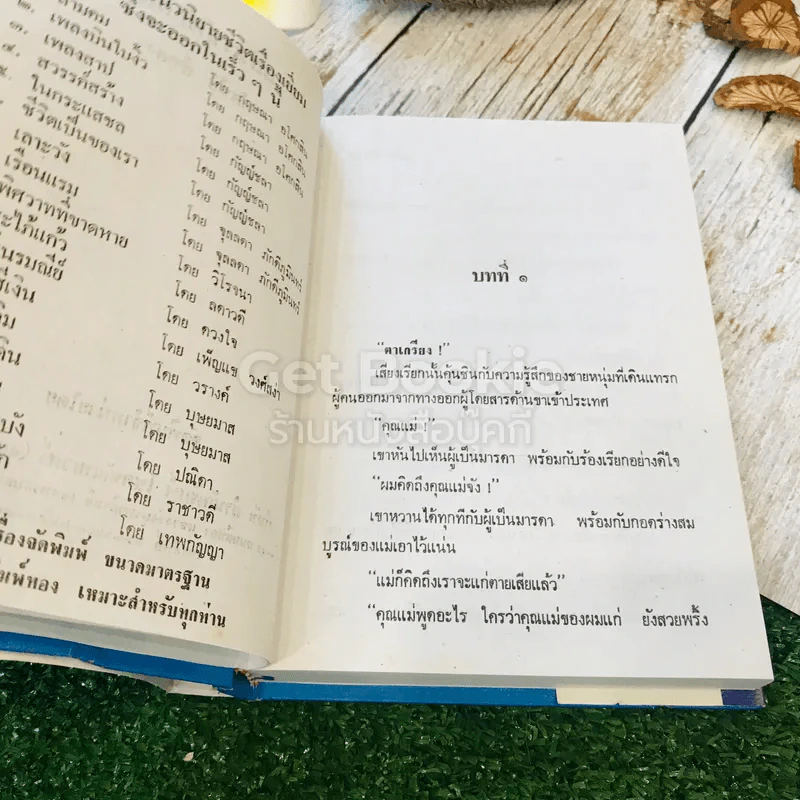 นวนิยายชีวิตเรื่องเยี่ยม
ซึ่งจะออกในเร็ว ๆ นี้
๒. สามคม โดย กฤษณา อโศกสิน
๓. เพลงบินใบงิ้ว โดย กฤษณา อโศกสิน
เพลงสาป โดย กฤษณา อโศกสิน
๔. สวรรค์สร้าง โดย กัญญ์ชลา
๕. ในกระแสชล โดย กัญญ์ชลา
ชีวิตเป็นของเรา โดย กัญญ์ชลา
เลาะวัง โดย จุลลดา ภักดีภูมินทร์
เรือนแรม โดย จุลลดา ภักดีภูมินทร์
พิศวาทที่ขาดหาย โดย วิโรจนา
โดย ลดาวดี
โดย ดวงใจ
โดย เพ็ญแข วงศ์สง่า
โดย วรางค์
โดย บุษยมาส
โดย บุษยมาส
โดย ปณิตา
โดย ราชาวดี
โดย เทพกัญญา
เรื่องจัดพิมพ์ ขนาดมาตรฐาน
พิมพ์ทอง เหมาะสำหรับทุกท่าน
บทที่ ๑
“ตาเกรียง !”
เสียงเรียกนั้นคุ้นชินกับความรู้สึกของชายหนุ่มที่เดินแทรก
ผู้คนออกมาจากทางออกผู้โดยสารด้านขาเข้าประเทศ
“คุณแม่ !”
เขาหันไปเห็นผู้เป็นมารดา พร้อมกับร้องเรียกอย่างดีใจ
“ผมคิดถึงคุณแม่จัง !”
เขาหวานได้ทุกทีกับผู้เป็นมารดา พร้อมกับกอดร่างสม
บูรณ์ของแม่เอาไว้แน่น
“แม่ก็คิดถึงเราจะแก่ตายเสียแล้ว”
“คุณแม่พูดอะไร ใครว่าคุณแม่ของผมแก่ ยังสวยพริ้ง
Get Bookie
ร้านหนังสือบุคกี้